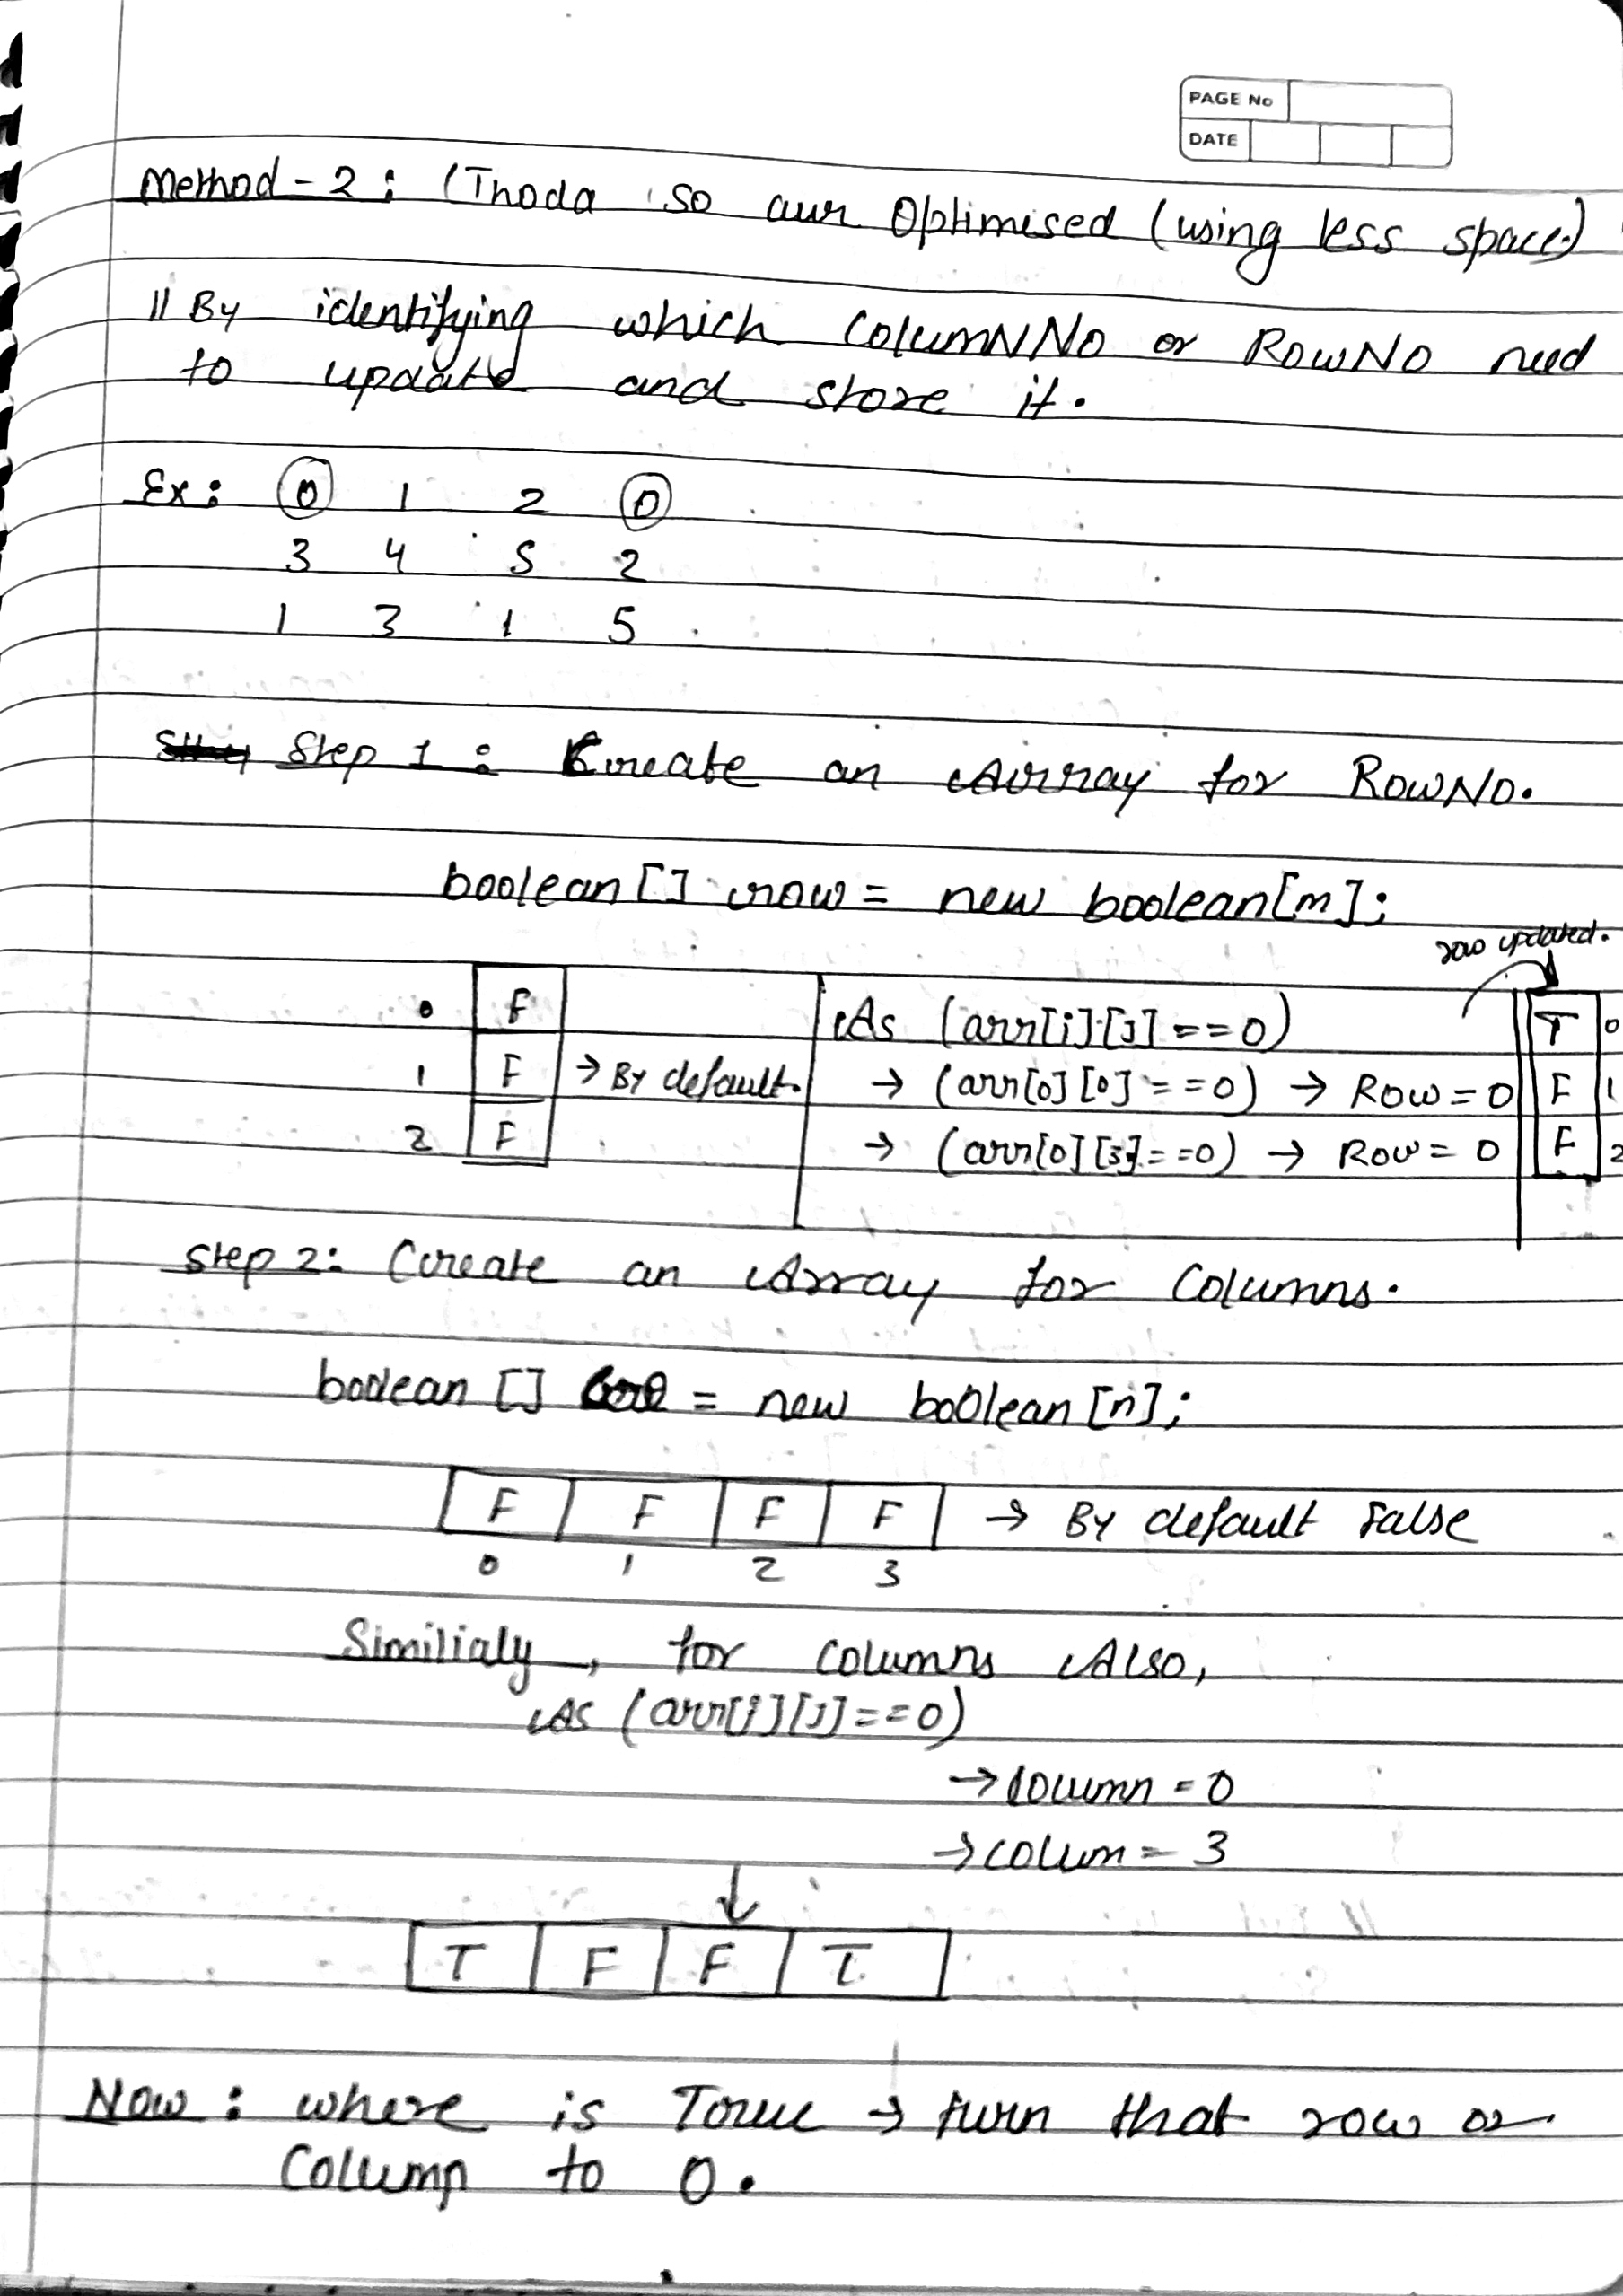 PAGE No
DATE
Method - 2 : (Thoda so aur Optimised (using less space)
// By identifying which ColumNNo or RowNo need
to update and store it.
Ex: 0 1 2 0
3 4 5 2
1 3 1 5
Step 1 : Create an Array for RowNo.
boolean [] row = new boolean[m];
row updated.
0 F As (arr[i][j] == 0) T 0
1 F → By default. → (arr[0][0] == 0) → Row = 0 F 1
2 F → (arr[0][3] == 0) → Row = 0 F 2
Step 2: Create an Array for Columns.
boolean [] = new boolean [n];
F F F F → By default False
0 1 2 3
Similialy, for columns Also,
As (arr[i][j] == 0)
→ Column = 0
→ colum = 3
↓
T F F T
Now : where is True → turn that row or
Column to 0.